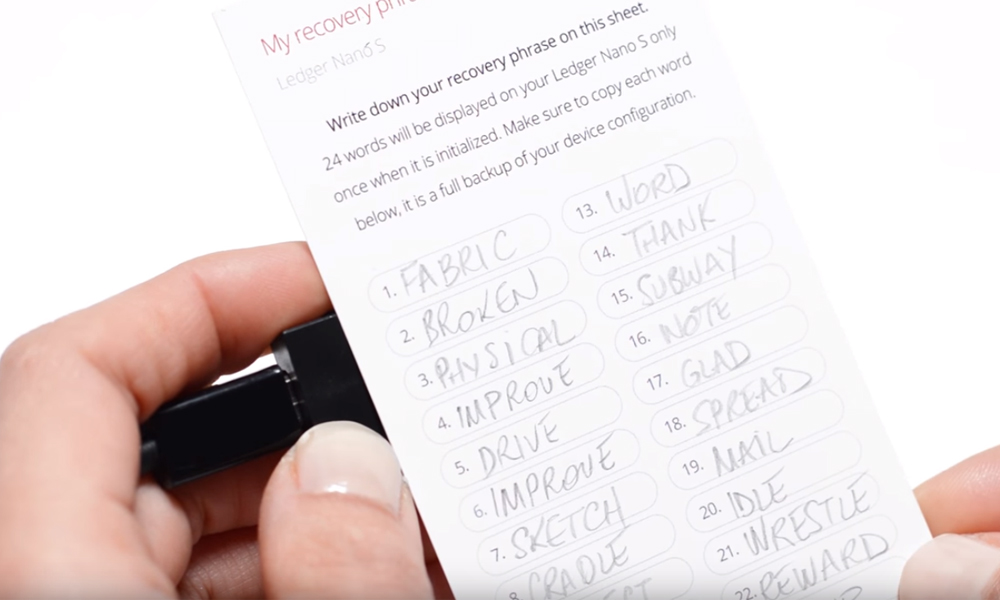 My recovery
Ledger Nano S
Write down your recovery phrase on this sheet.
24 words will be displayed on your Ledger Nano S only
once when it is initialized. Make sure to copy each word
below, it is a full backup of your device configuration.
1. FABRIC
2. BROKEN
3. PHYSICAL
4. IMPROVE
5. DRIVE
6. IMPROVE
7. SKETCH
8. CRADLE
13. WORD
14. THANK
15. SUBWAY
16. NOTE
17. GLAD
18. SPREAD
19. MAIL
20. IDLE
21. WRESTLE
22. REWARD